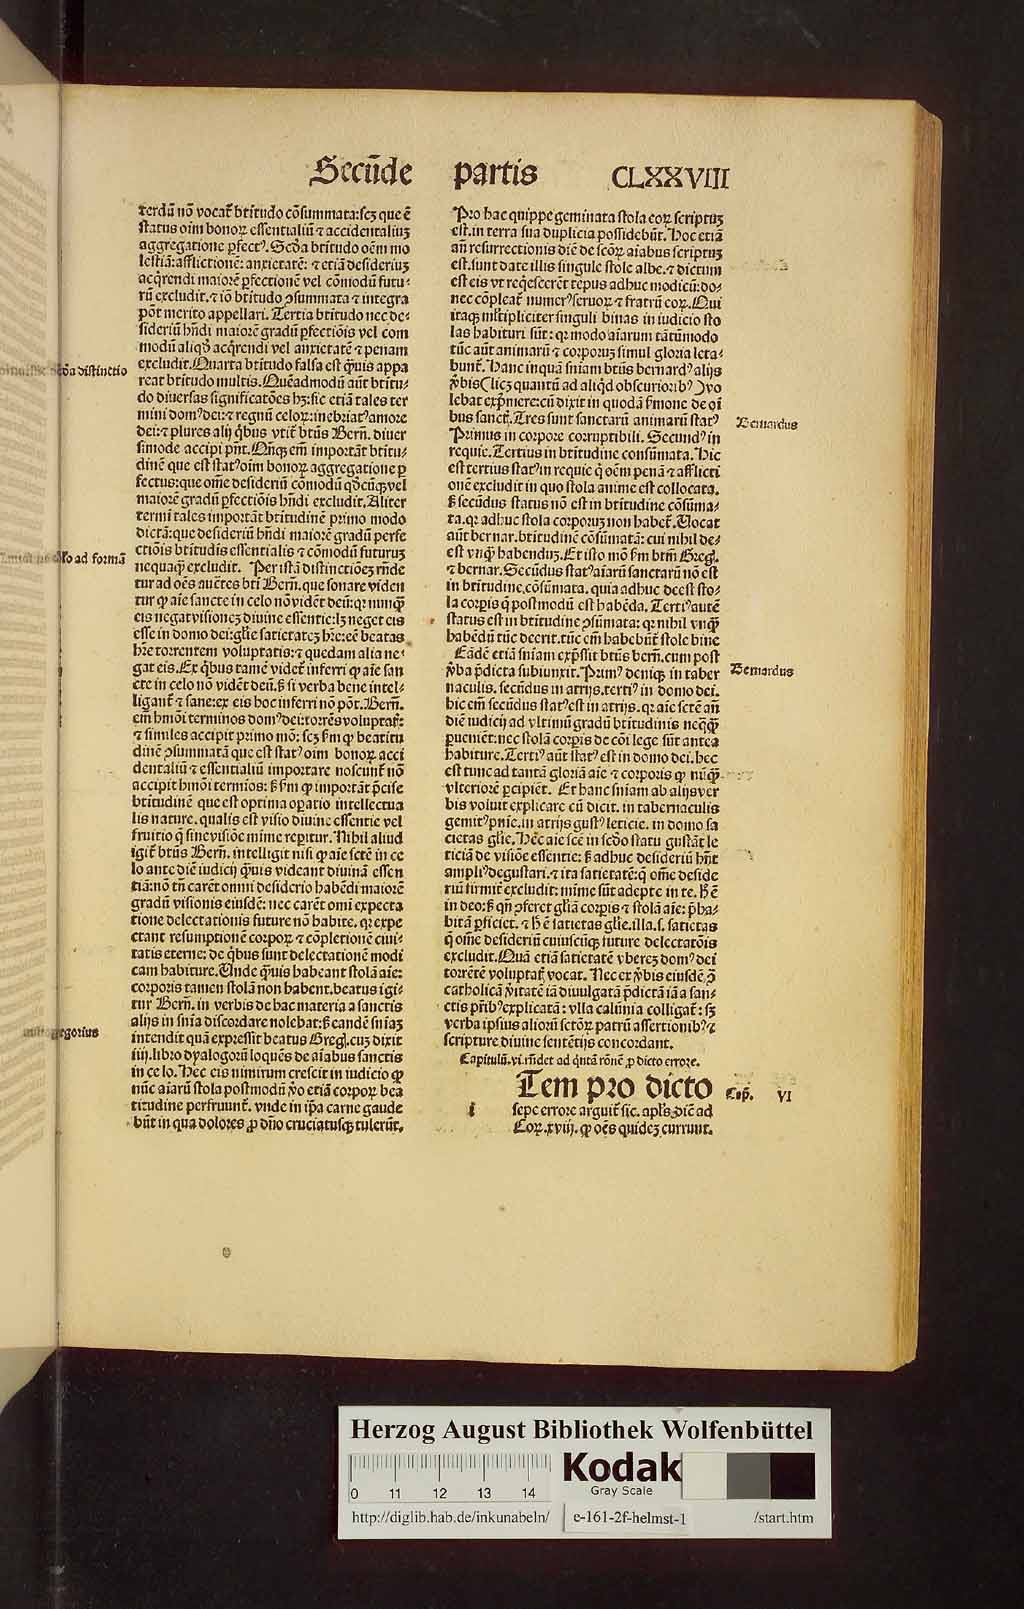 Secūde partis CLXXVIII
terdū nō vocat᷑ btitudo cōsummata: scꝫ que ē
status oim bonoꝝ essentialiū ⁊ accidentaliuꝫ
aggregatione ꝑfectꝰ. Scd̓a btitudo oēm mo
lestiā: afflictionē: anxietatē: ⁊ etiā desideriuꝫ
acq̓rendi maiorē ꝑfectionē vel cōmodū futu-
rū excludit. ⁊ iō btitudo ꝯsummata ⁊ integra
pōt merito appellari. Tertia btitudo nec de-
sideriū hn̄di maiorē gradū ꝑfectiōis vel com
modū aliqḋ acq̓rendi vel anxietatē ⁊ penam
excludit. Quarta btitudo falsa est q̄uis appa
reat btitudo multis. Quēadmodū aūt btitu-
do diuersas significatōes hꝫ: sic etiā tales ter
mini domꝰ dei: ⁊ regnū celoꝝ: inebriat᷑ amore
dei: ⁊ plures alij q̓bus vtit᷑ btūs Bern̄. diuer
simode accipi pn̄t. Qn̄qꝫ em̄ importāt btitu-
dinē que est statꝰ oim bonoꝝ aggregatione ꝑ
fectus: que om̄e desideriū cōmodū qḋcūqꝫ vel
maiorē gradū ꝑfectiōis hn̄di excludit. Aliter
termi tales importāt btitudinē primo modo
dictā: que desideriū hn̄di maiorē gradū perfe
ctiōis btitudis essentialis ⁊ cōmodū futuruꝫ
nequaqꝫ excludit. Per istā distinctiōeꝫ rn̄de
tur ad oēs auētes bti Bern̄. que sonare viden
tur ꝙ aīe sancte in celo nō vidēt deū: qꝛ nunqꝫ
eis negat visioneꝫ diuine essentie: lꝫ neget eis
esse in domo dei: gl̄ie satietateꝫ hr̄e: eē beatas
hr̄e torrentem voluptatis: ⁊ quedam alia ne-
gat eis. Ex q̓bus tamē videt᷑ inferri ꝙ aīe san
cte in celo nō vidēt deū. ꝫ si verba bene intel-
ligant᷑ ⁊ sane: ex eis hoc inferri nō pōt. Bern̄.
em̄ hmōi terminos domꝰ dei: torrēs voluptat᷑:
⁊ similes accipit primo mō: scꝫ ẜm ꝙ beatitu
dinē ꝯsummatā que est statꝰ oim bonoꝝ acci
dentaliū ⁊ essentialiū importare noscunt᷑ nō
accipit hmōi termīos: ꝫ ẜm ꝙ importāt p̄cise
btitudinē que est optima oꝑatio intellectua
lis nature. qualis est visio diuine essentie vel
fruitio q̄ sine visiōe mime reꝑitur. Nihil aliud
igit᷑ btūs Bern̄. intelligit nisi ꝙ aīe scte in ce
lo ante diē iudicij q̄uis videant diuinā essen
tiā: nō tn̄ carēt omni desiderio habēdi maiorē
gradū visionis eiusdē: nec carēt omī expecta
tione delectationis future nō habite. qꝛ expe
ctant resumptionē corpoꝝ ⁊ cōpletionē ciui-
tatis eterne: de q̓bus sunt delectationē modi
cam habiture. Unde q̄uis habeant stolā aīe:
corporis tamen stolā non habent. beatus igi-
tur Bern̄. in verbis de hac materia a sanctis
alijs in snīa discordare nolebat: ꝫ eandē sniaꝫ
intendit quā expressit beatus Greg̓. cuꝫ dixit
iiij. libro dyalogorū loquēs de aīabus sanctis
in celo. Hec eis nimirum crescit in iudicio ꝙ
nūc aīarū stola postmodū v̓o etiā corpoꝝ bea
titudine perfruunt᷑. vnde in ip̄a carne gaude
būt in qua dolores ꝓ dn̄o cruciatusqꝫ tulerūt.
scd̓a distinctio
ad formā
gregorius
Pro hac quippe geminata stola eoꝝ scriptuꝫ
est. in terra sua duplicia possidebūt. Hoc etiā
an̄ resurrectionis diē de scōꝝ aīabus scriptuꝫ
est. sunt date illis singule stole albe. ⁊ dictum
est eis vt reqescerēt tēpus adhuc modicū: do-
nec cōpleat᷑ numerꝰ seruoꝝ ⁊ fratrū eoꝝ. Qui
itaqꝫ mltipliciter singuli binas in iudicio sto
las habituri sūt: qꝛ modo aīarum tātūmodo
tūc aūt animarū ⁊ corporuꝫ simul gloria leta-
bunt᷑. Hanc inquā sniam btūs bernardꝰ alijs
v̓bis (licꝫ quantū ad aliqḋ obscurioribꝰ) vo
lebat exp̄mere: cū dixit in quodā ẜmone de oī
bus sanct᷑. Tres sunt sanctarū animarū statꝰ
Primus in corpore corruptibili. Secundꝰ in
requie. Tertius in btitudine consūmata. Hic
est tertius statꝰ in requie q̓ oēm penā ⁊ afflicti
onē excludit in quo stola anime est collocata.
ꝫ secūdus status nō est in btitudine cōsūma-
ta. qꝛ adhuc stola corporuꝫ non habet᷑. Vocat
aūt bernar. btitudinē cōsūmatā: cui nihil de-
est vnqꝫ habenduꝫ. Et isto mō ẜm btm̄ Greg̓.
⁊ bernar. Secūdus statꝰ aīarū sanctarū nō est
in btitudine cōsūmata. quia adhuc deest sto-
la corꝑis q̄ postmodū est habēda. Tertiꝰ autē
status est in btitudine ꝯsūmata: qꝛ nihil vnqꝫ
habēdū tūc deerit. tūc em̄ habebūt stole bine
Eādē etiā sniam exp̄ssit btūs bern̄. cum post
v̓ba p̄dicta subiunxit. Primꝰ deniqꝫ in taber
naculis. secūdus in atrijs. tertiꝰ in domo dei.
hic em̄ secūdus statꝰ est in atrijs. qꝛ aīe scte an̄
diē iudicij ad vltimū gradū btitudinis neq̄qꝫ
ꝑueniēt: nec stolā corꝑis de cōi lege sūt antea
habiture. Tertiꝰ aūt statꝰ est in domo dei. hec
est tunc ad tantā gloriā aīe ⁊ corporis ꝙ nūqꝫ
vlteriorē ꝑcipiēt. Et hanc sniam ab alijs ver
bis voluit explicare cū dicit. in tabernaculis
gemitꝰ pnīe. in atrijs gustꝰ leticie. in domo sa
cietas gl̄ie. Hec aīe scē in scd̓o statu gustāt le
ticiā de visiōe essentie: ꝫ adhuc desideriū hn̄t
ampliꝰ degustari. ⁊ ita satietatē: q̄ om̄e deside
riū excludit: mīme sūt adepte in te. H̓ ē
in deo: ꝫ qn̄ ꝯferet gl̄iā corꝑis ⁊ stolā aīe: p̄ha-
bitā ꝑficiet. ⁊ h̓ ē satietas gl̄ie. illa. s. satietas
q̄ om̄e desideriū cuiuscūqꝫ future delectatōis
excludit. Quā etiā satietatē vbereꝫ domꝰ dei
torrētē voluptat᷑ vocat. Nec ex v̓bis eiusdē ꝯ̄
catholicā v̓itatē iā diuulgatā p̄dictā iā a san-
ctis pr̄ibꝰ explicatā: vlla calūnia colligat᷑: sꝫ
verba ipsius aliorū sctōꝝ patrū assertionibꝰ ⁊
scripture diuine sentētijs concordant.
Capitulū. vi. rn̄det ad q̓ntā rōnē ꝓ dicto errore.
i Tem pro dicto
sepe errore arguit᷑ sic. apl̄s dic̄ ad
Coꝝ. xviij. ꝙ oēs quideꝫ currunt.
Bernardus
Bernardus
Cap̄. VI
Herzog August Bibliothek Wolfenbüttel
0 11 12 13 14
Kodak
Gray Scale
http://diglib.hab.de/inkunabeln/ e-161-2f-helmst-1 /start.htm